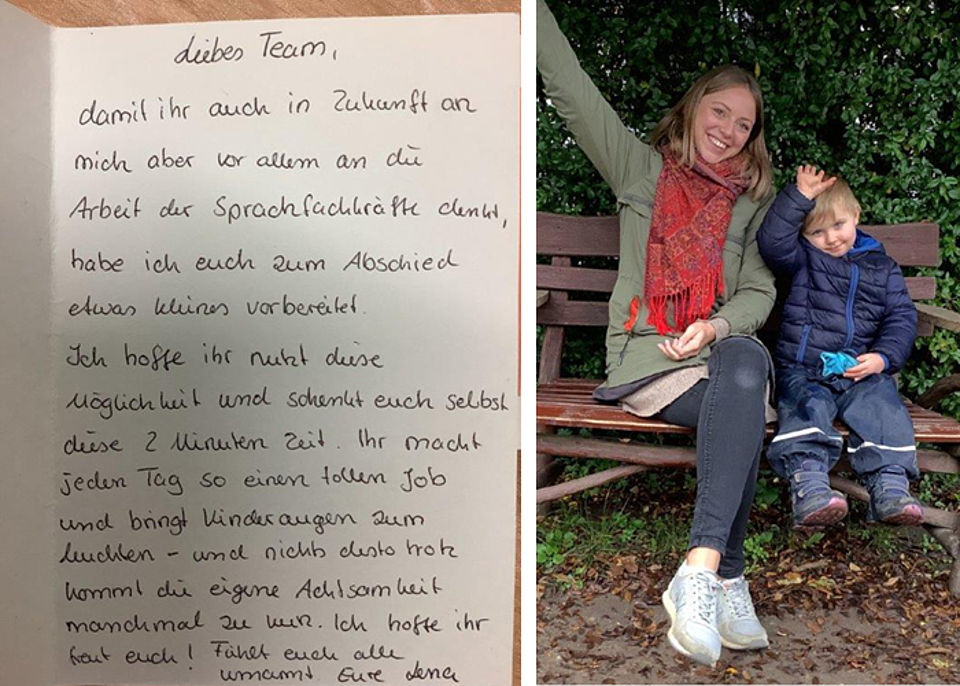 Liebes Team,
damit ihr auch in Zukunft an
mich aber vor allem an die
Arbeit der Sprachfachkräfte denkt,
habe ich euch zum Abschied
etwas kleines vorbereitet.
Ich hoffe ihr nutzt diese
Möglichkeit und schenkt euch selbst
diese 2 Minuten Zeit. Ihr macht
jeden Tag so einen tollen Job
und bringt Kinderaugen zum
leuchten - und nichts desto trotz
kommt die eigene Achtsamkeit
manchmal zu kurz. Ich hoffe ihr
freut euch! Fühlt euch alle
umarmt Eure Lena